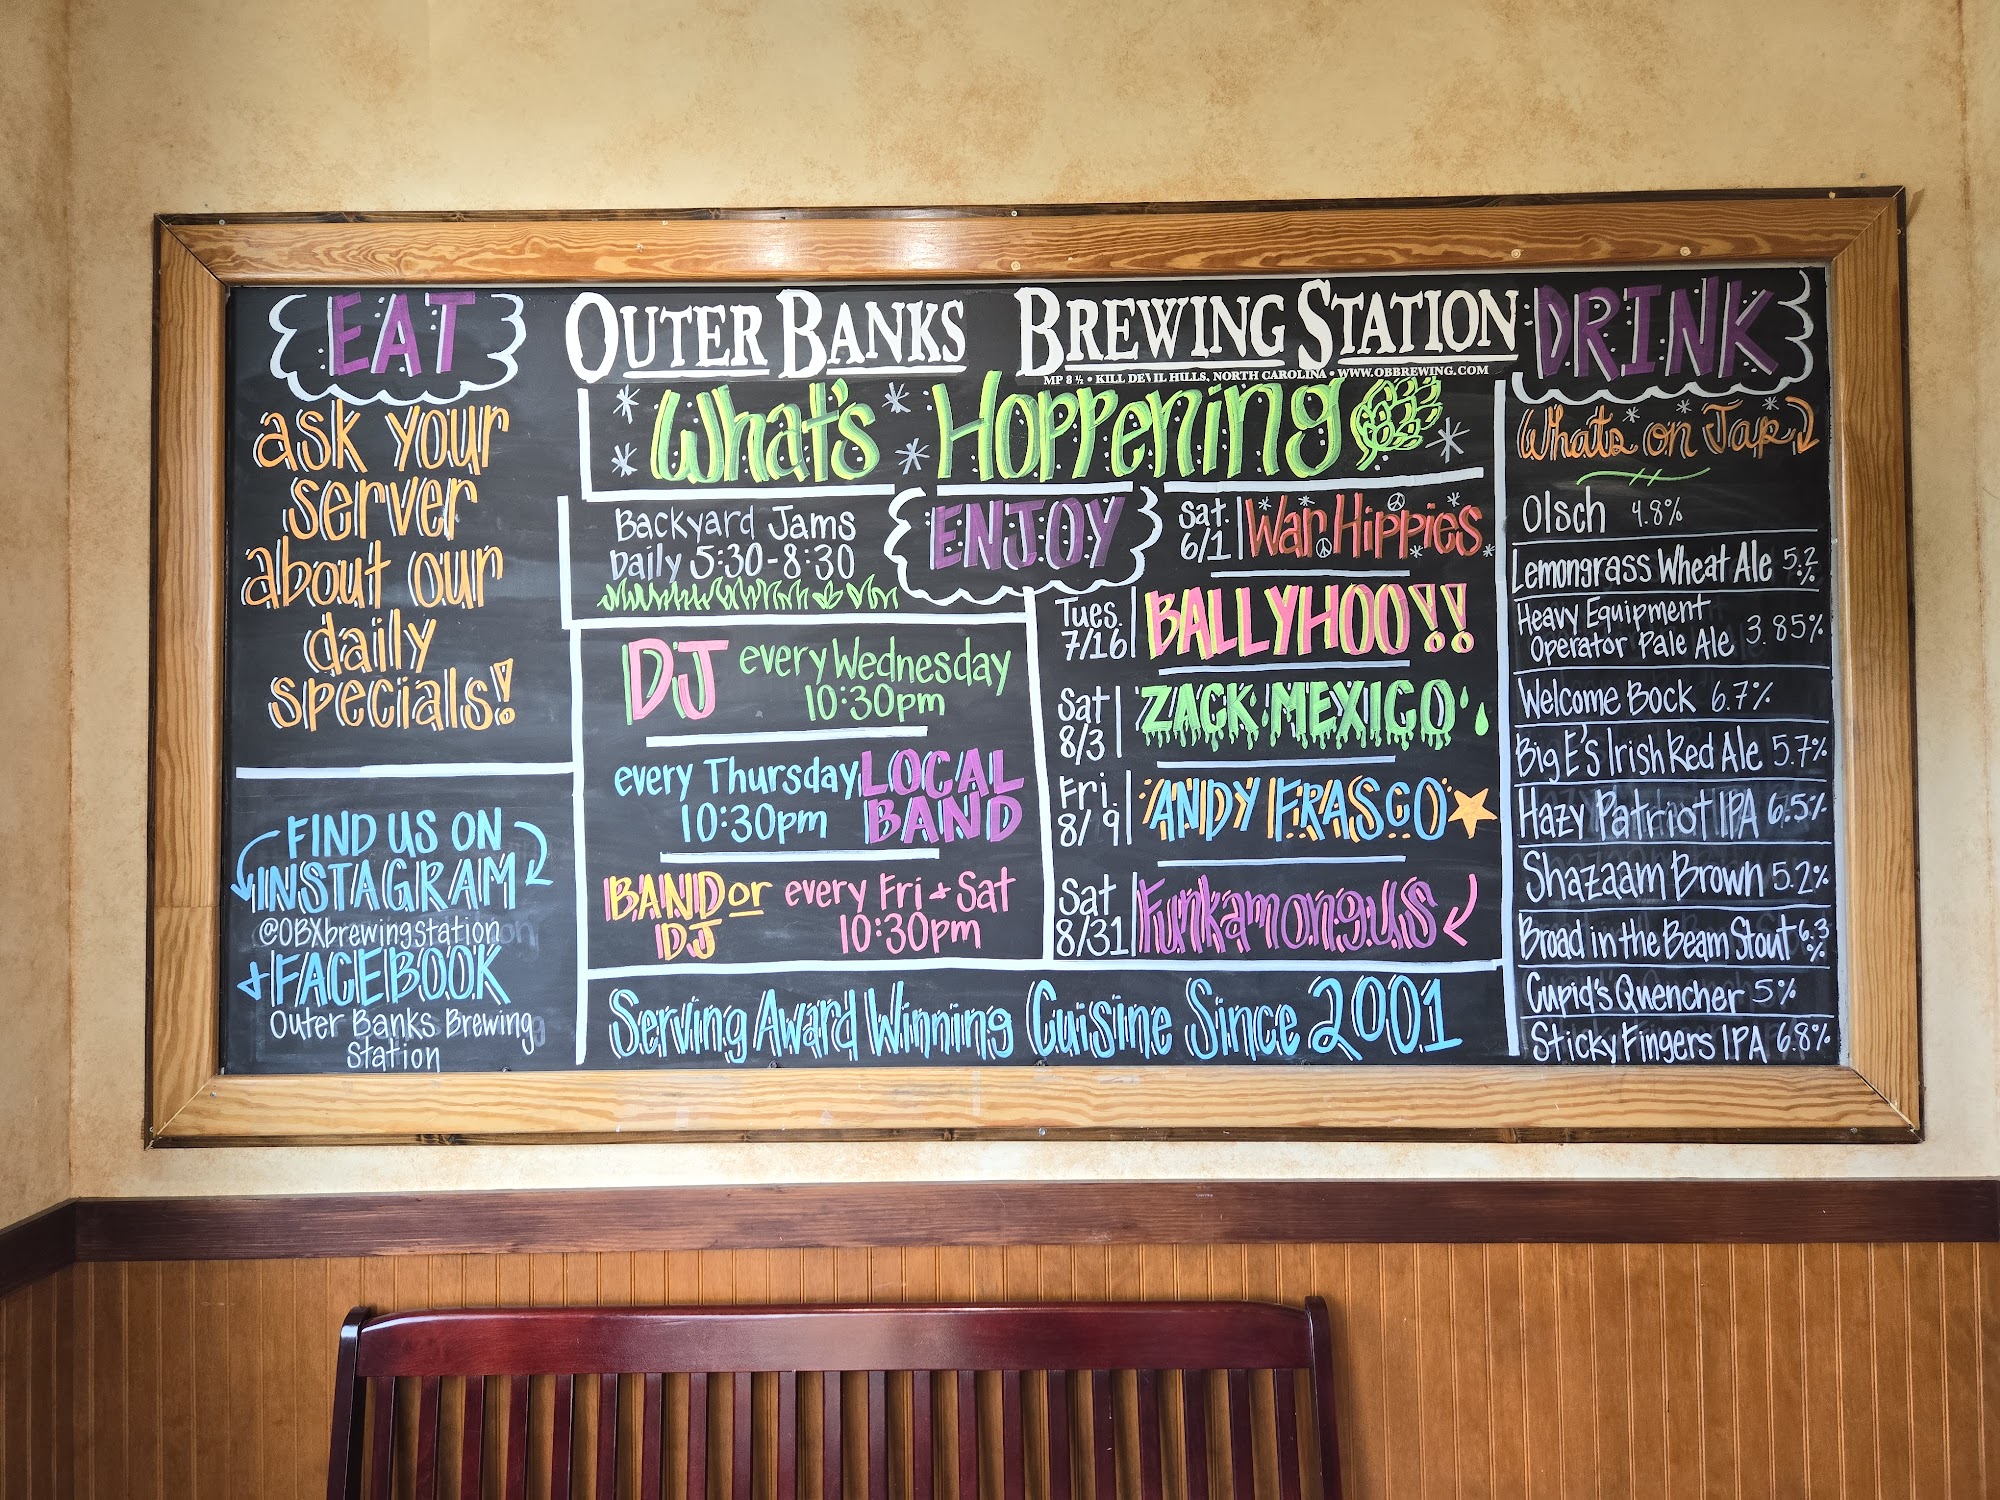 EAT
ask your
server
about our
daily
specials!
FIND US ON
INSTAGRAM
@OBXbrewingstation
+ FACEBOOK
Outer Banks Brewing
Station
OUTER BANKS BREWING STATION
MP 8 ½ • KILL DEVIL HILLS, NORTH CAROLINA • WWW.OBBREWING.COM
What's Hoppening
Backyard Jams
Daily 5:30-8:30
ENJOY
DJ every Wednesday
10:30pm
every Thursday LOCAL
10:30pm BAND
BAND or every Fri + Sat
DJ 10:30pm
Sat. War Hippies
6/1
Tues. BALLYHOO!!
7/16
Sat ZACK MEXICO
8/3
Fri. ANDY FRASCO
8/9
Sat Funkamongus
8/31
Serving Award Winning Cuisine Since 2001
DRINK
What's on Tap
Olsch 4.8%
Lemongrass Wheat Ale 5.2%
Heavy Equipment
Operator Pale Ale 3.85%
Welcome Bock 6.7%
Big E's Irish Red Ale 5.7%
Hazy Patriot IPA 6.5%
Shazaam Brown 5.2%
Broad in the Beam Stout 6.3%
Cupid's Quencher 5%
Sticky Fingers IPA 6.8%